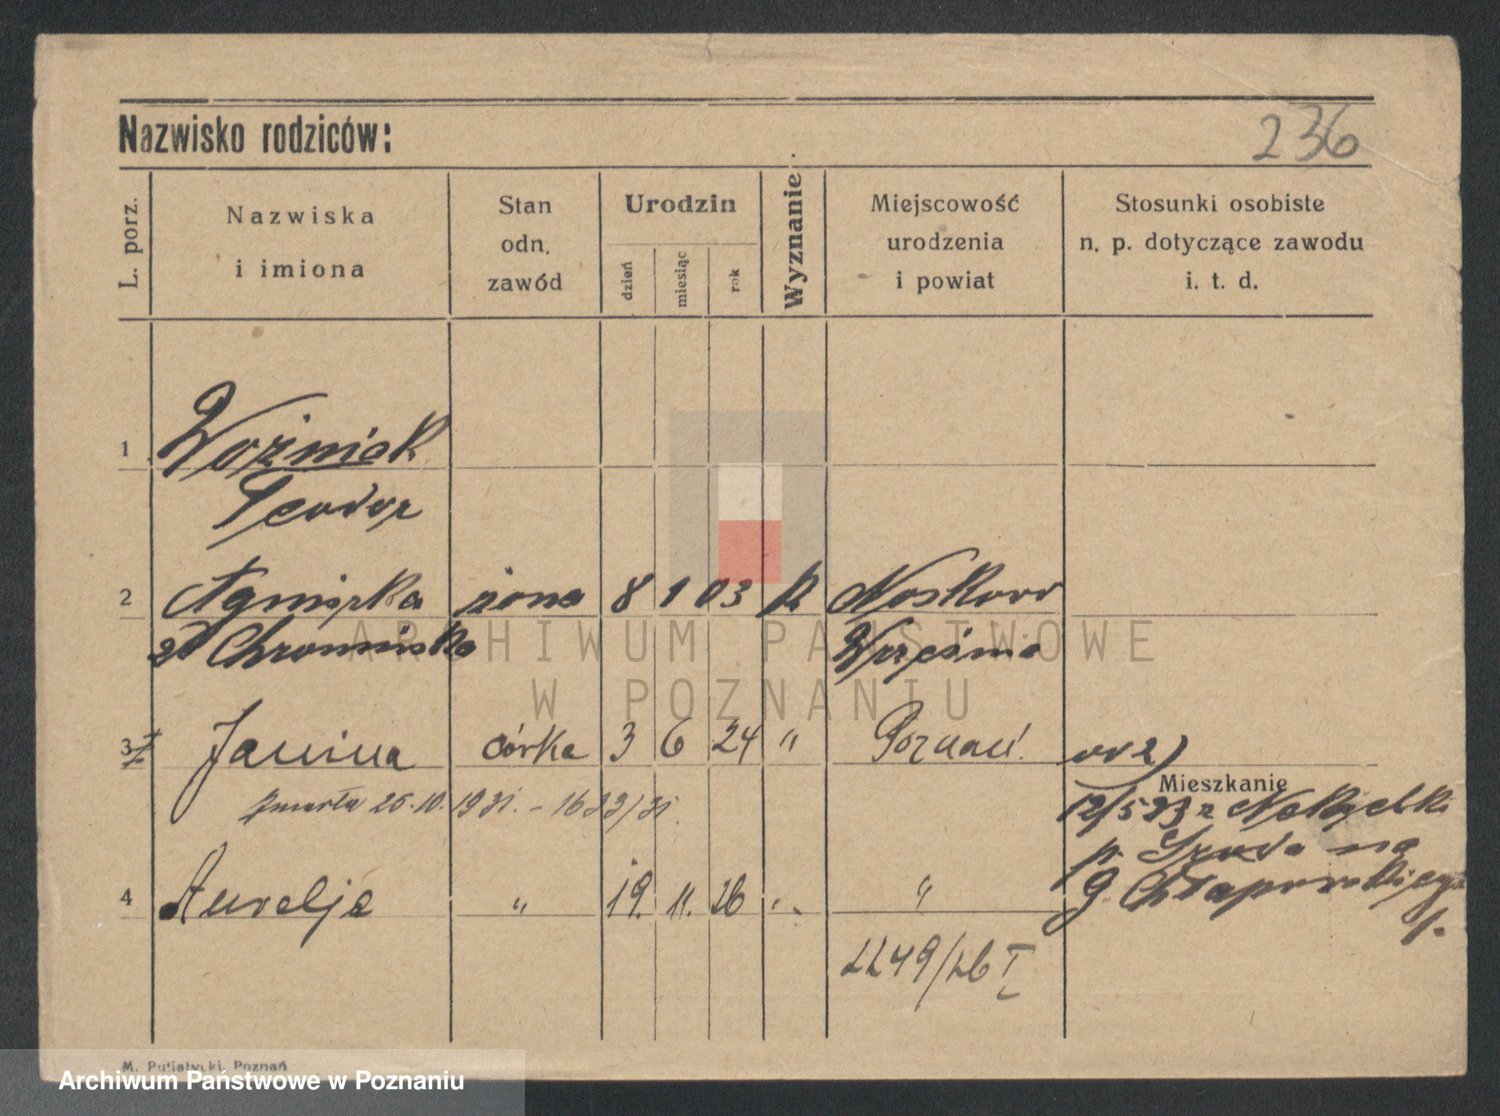 Nazwisko rodziców:
236
L. porz.
Nazwiska
i imiona
Stan
odn.
zawód
Urodzin
dzień
miesiąc
rok
Wyznanie
Miejscowość
urodzenia
i powiat
Stosunki osobiste
n. p. dotyczące zawodu
i. t. d.
1 Woźniak
Teodor
2 Agnieszka żona 8 1 03 k Noskowo
zd Chromińska Września
ARCHIWUM PAŃSTWOWE
W POZNANIU
3 Janina córka 3 6 24 " Poznań od 2)
Mieszkanie
zmarła 25.10.1931. - 1633/31. 12/5 23 z Nekielki
p. Środa na
4 Aurelja " 19. 11. 26 " " g. Chłapowskiego
1.
2249/26 I
M. Putiatycki, Poznań
Archiwum Państwowe w Poznaniu